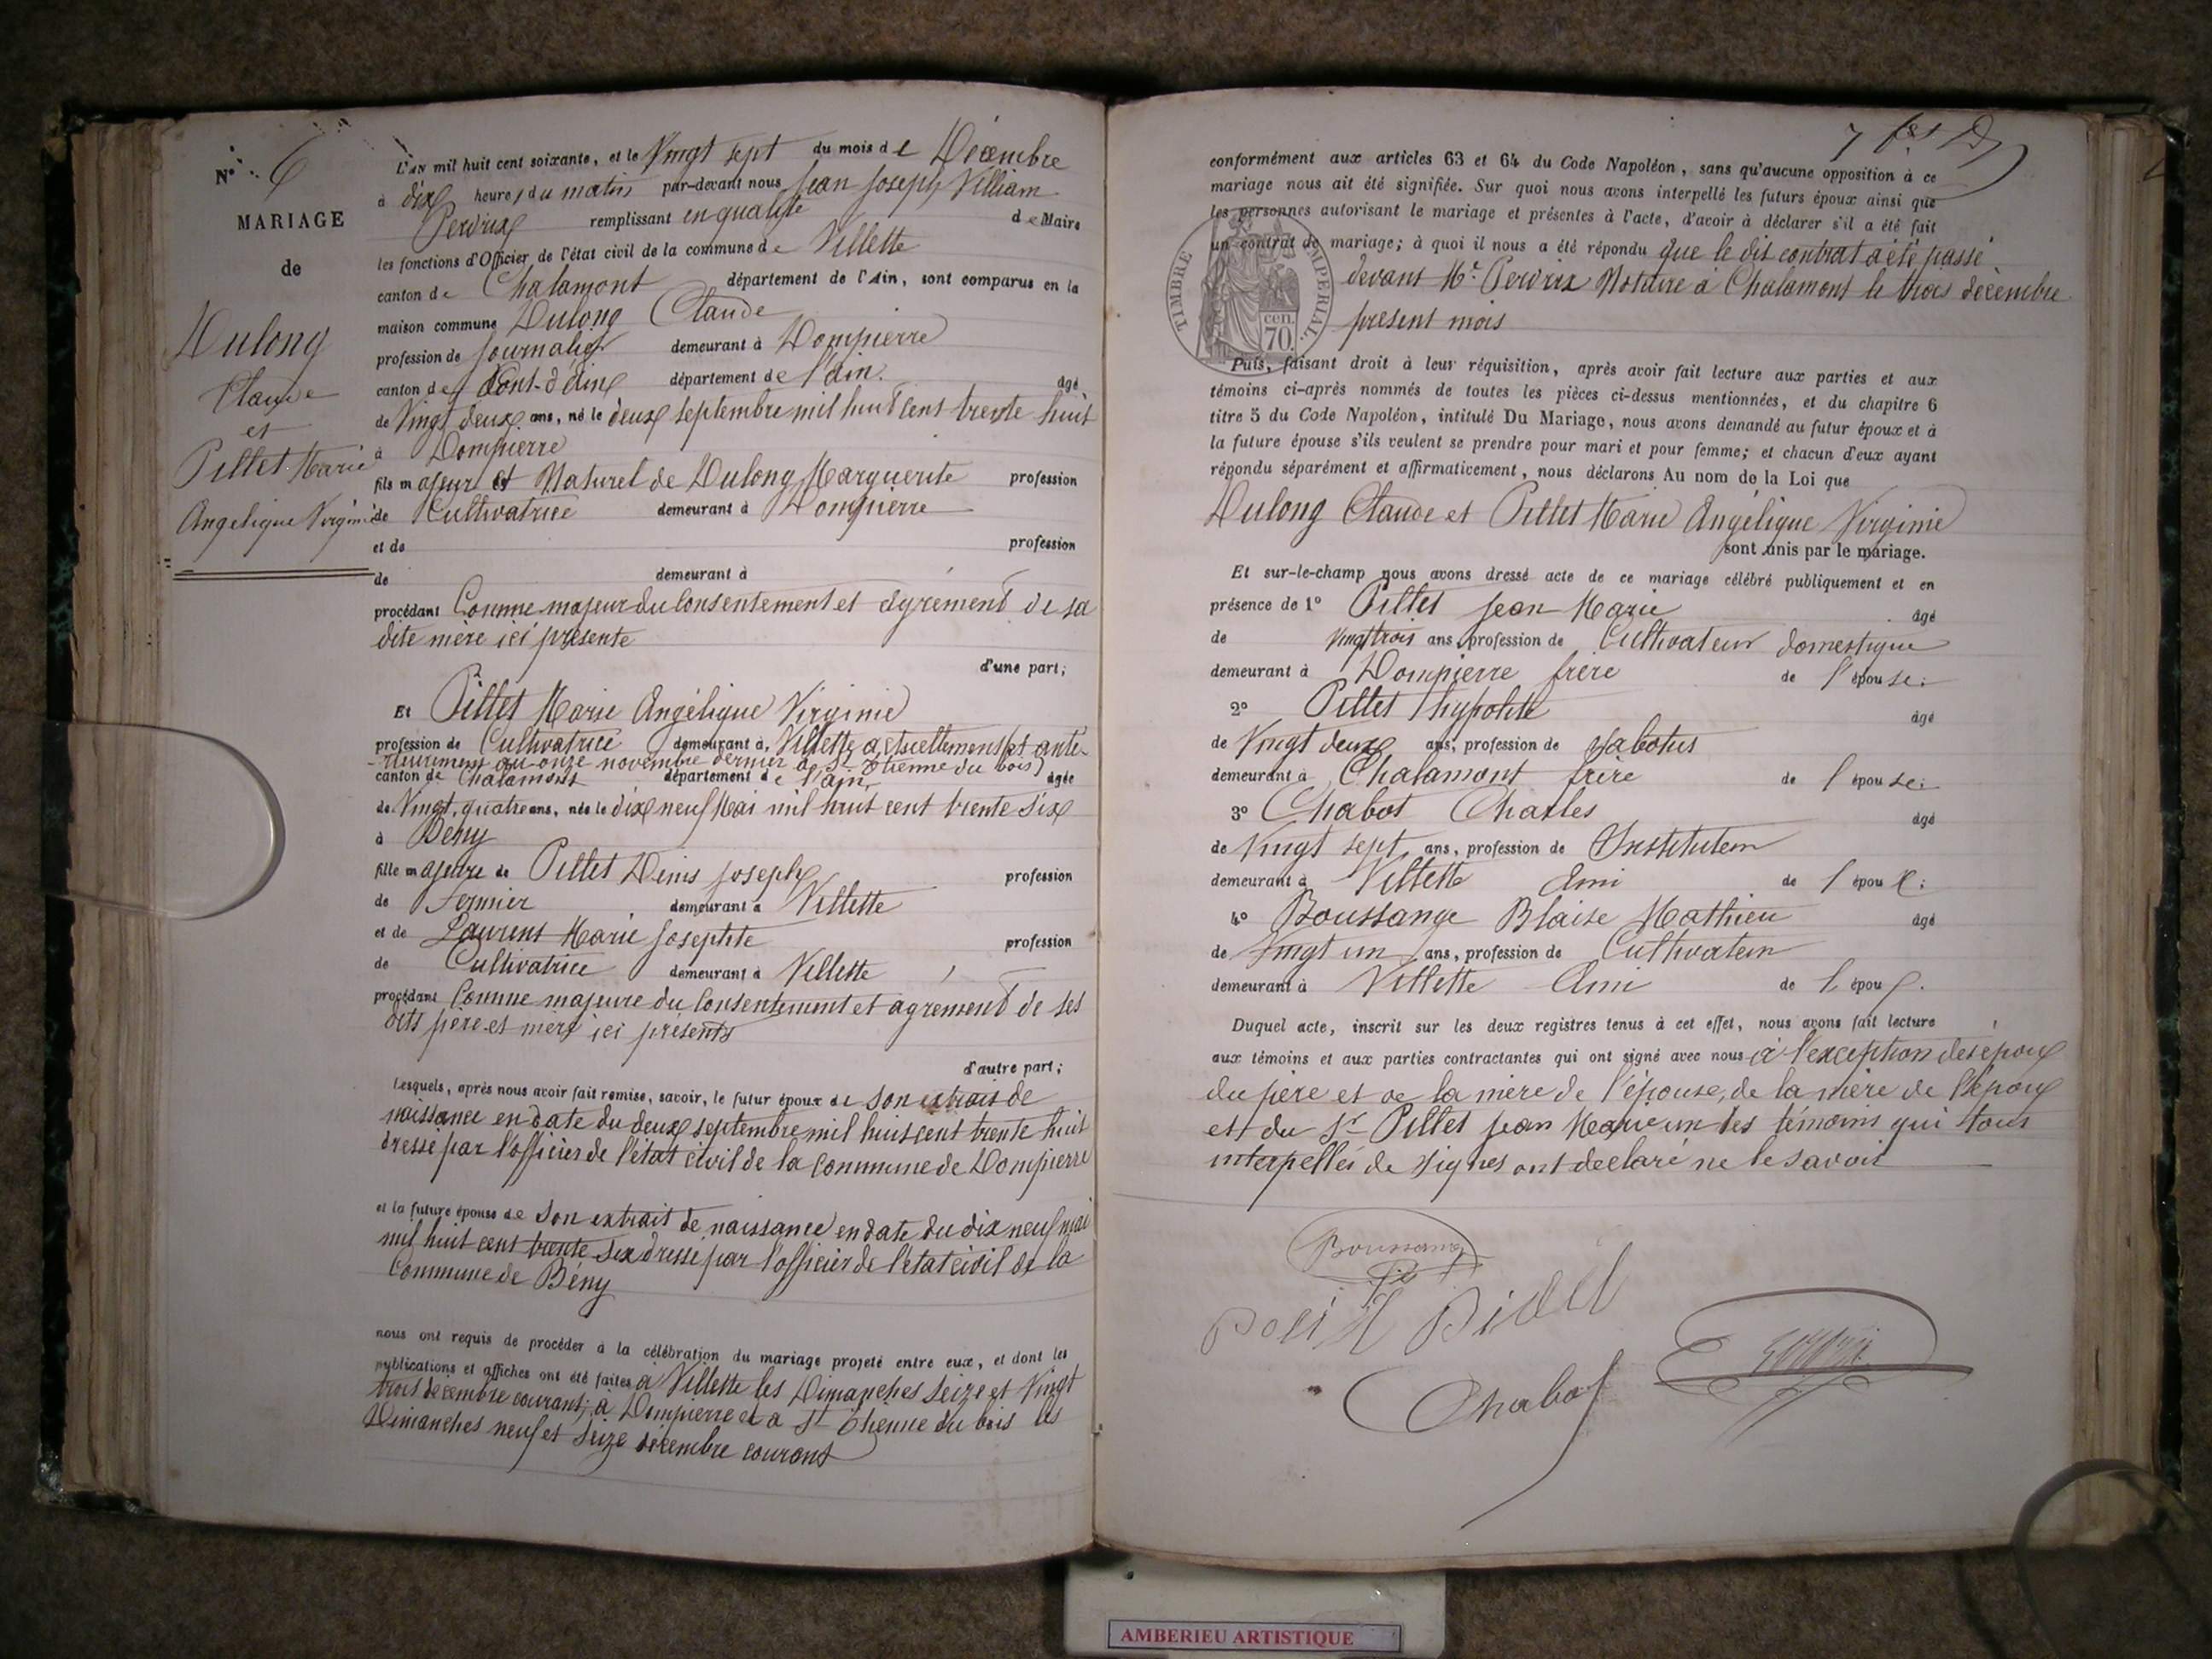 N° 6
MARIAGE
de
Dulong
Claude
et
Pillet Marie
Angelique Virginie
L'an mil huit cent soixante, et le Vingt sept du mois de Décembre
à dix heures du matin par-devant nous Jean Joseph Villiam
Perdrix remplissant en qualité de Maire
les fonctions d'Officier de l'état civil de la commune de Villette
canton de Chalamont département de l'Ain, sont comparus en la
maison commune Dulong Claude
profession de Journalier demeurant à Dompierre
canton de Pont-d'ain département de l'ain. âgé
de Vingt deux ans, né le deux septembre mil huit cent trente huit
à Dompierre
fils majeur et Naturel de Dulong Marguerite profession
de Cultivatrice demeurant à Dompierre
et de profession
de demeurant à
procédant Comme majeur du Consentement et agrément de sa
dite mère ici présente
d'une part;
Et Pillet Marie Angélique Virginie
profession de Cultivatrice demeurant à Villette actuellement et anté-
-rieurement au onze novembre dernier à St Etienne du bois
canton de Chalamont département de l'ain âgée
de Vingt quatre ans, née le dix neuf Mai mil huit cent trente six
à Beny
fille majeure de Pillet Denis Joseph profession
de Fermier demeurant à Villette
et de Laurent Marie Josephte profession
de Cultivatrice demeurant à Villette
procédant Comme majeure du Consentement et agrément de ses
dits père et mère ici présents
d'autre part;
Lesquels, après nous avoir fait remise, savoir, le futur époux de son extrait de
naissance en date du deux septembre mil huit cent trente huit
dressé par l'officier de l'état civil de la Commune de Dompierre
et la future épouse de son extrait de naissance en date du dix neuf mai
mil huit cent trente six dressé par l'officier de l'état civil de la
Commune de Bény
nous ont requis de procéder à la célébration du mariage projeté entre eux, et dont les
publications et affiches ont été faites à Villette les Dimanches seize et Vingt
trois decembre courant; à Dompierre et a St Etienne du bois les
Dimanches neuf et seize décembre courant
conformément aux articles 63 et 64 du Code Napoléon, sans qu'aucune opposition à ce
mariage nous ait été signifiée. Sur quoi nous avons interpellé les futurs époux ainsi que
les personnes autorisant le mariage et présentes à l'acte, d'avoir à déclarer s'il a été fait
un contrat de mariage; à quoi il nous a été répondu que le dit contrat a été passé
devant Me Perdrix Notaire à Chalamont le trois décembre
présent mois
TIMBRE IMPERIAL.
cen.
70.
Puis, faisant droit à leur réquisition, après avoir fait lecture aux parties et aux
témoins ci-après nommés de toutes les pièces ci-dessus mentionnées, et du chapitre 6
titre 5 du Code Napoléon, intitulé Du Mariage, nous avons demandé au futur époux et à
la future épouse s'ils veulent se prendre pour mari et pour femme; et chacun d'eux ayant
répondu séparément et affirmativement, nous déclarons Au nom de la Loi que
Dulong Claude et Pillet Marie Angélique Virginie
sont unis par le mariage.
Et sur-le-champ nous avons dressé acte de ce mariage célébré publiquement et en
présence de 1° Pillet Jean Marie âgé
de vingt trois ans, profession de Cultivateur domestique
demeurant à Dompierre frère de l'épouse;
2° Pillet hypolite âgé
de Vingt deux ans, profession de Sabotier
demeurant à Chalamont frère de l'épouse;
3° Chabot Charles âgé
de Vingt sept ans, profession de Instituteur
demeurant à Villette Ami de l'époux;
4° Boussange Blaise Mathieu âgé
de Vingt un ans, profession de Cultivateur
demeurant à Villette Ami de l'époux.
Duquel acte, inscrit sur les deux registres tenus à cet effet, nous avons fait lecture
aux témoins et aux parties contractantes qui ont signé avec nous à l'exception des époux
du père et de la mère de l'épouse, de la mère de l'époux
et du Sr Pillet Jean Marie un des témoins qui tous
interpellés de signer ont declaré ne le savoir
Boussange
Chabot
AMBERIEU ARTISTIQUE